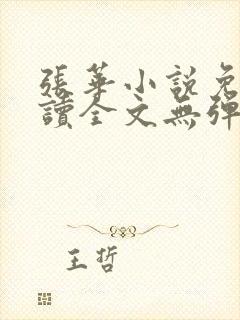 張華小説免
讀全文無彈
王哲